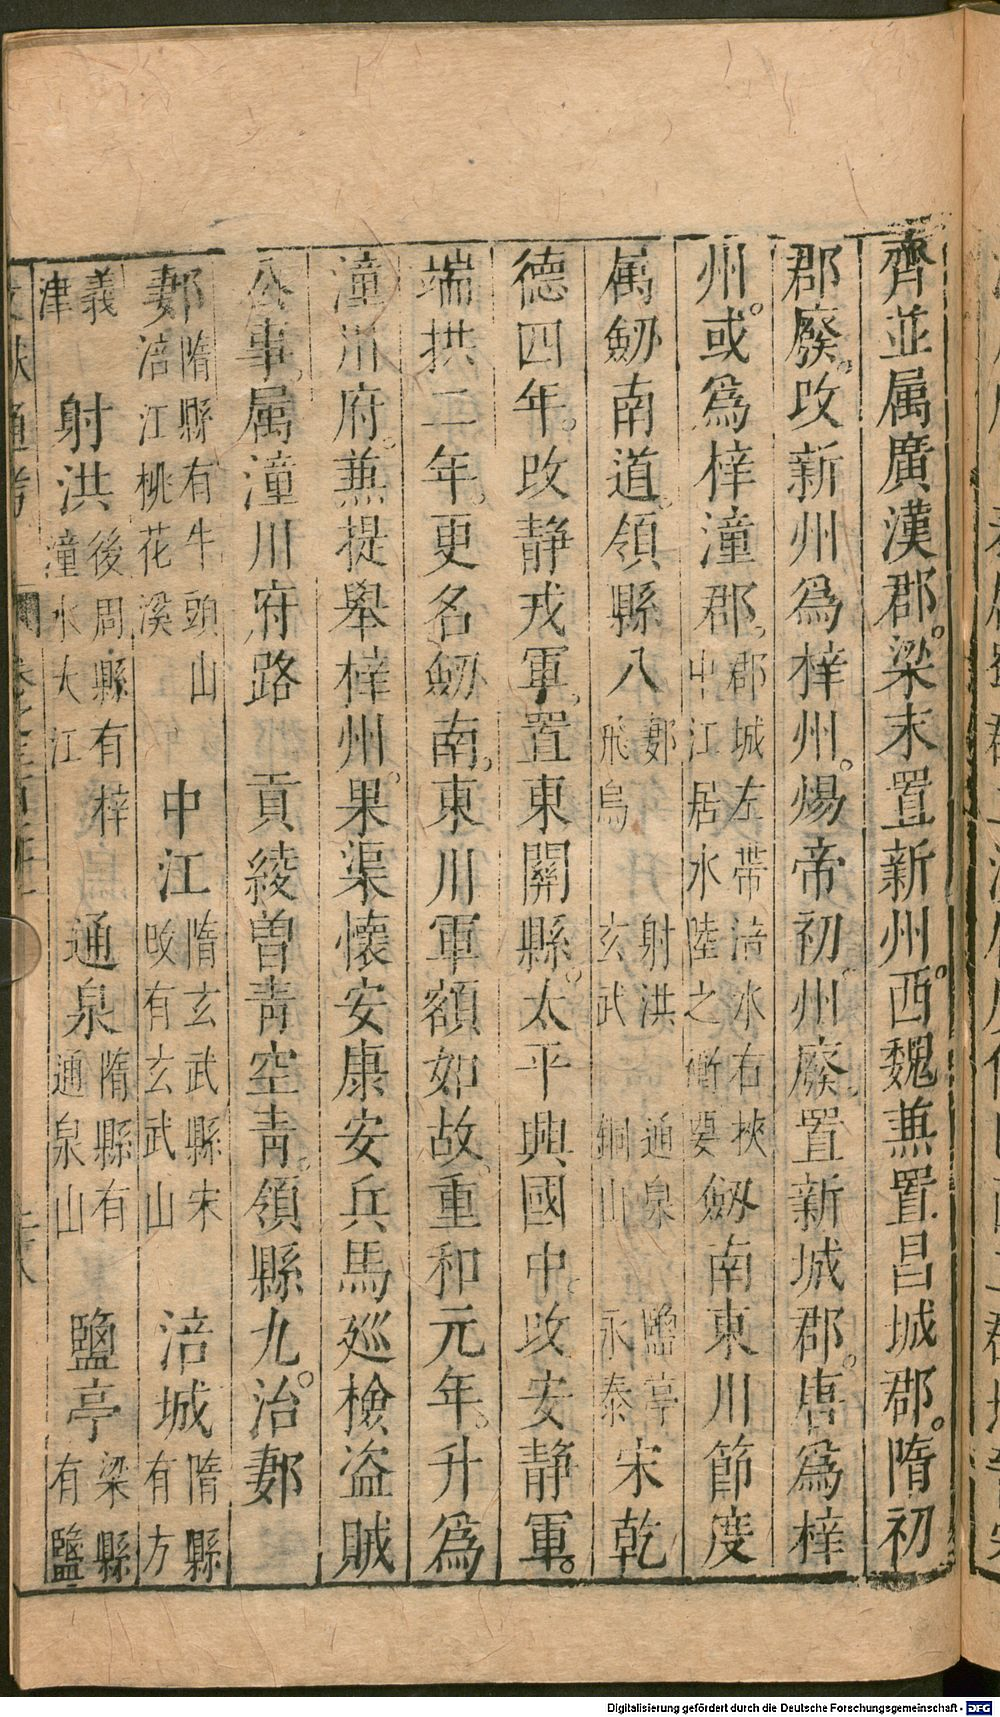 齊並属廣漢郡。梁末置新州。西魏兼置昌城郡。隋初
郡廢。改新州爲梓州。煬帝初。州廢。置新城郡。唐爲梓
州。或爲梓潼郡。郡城左帶涪水右挾中江居水陸之衝要劒南東川節度
属劒南道。領縣八郪射洪通泉鹽亭飛烏玄武銅山永泰宋乾
德四年。改静戎軍。置東關縣。太平興國中。改安静軍。
端拱二年。更名劒南。東川軍額如故。重和元年。升爲
潼川府。兼提舉梓州。果渠懷安康安兵馬廵檢盗賊
公事。属潼川府路 貢綾曽青空青。領縣九。治郪
郪隋縣有牛頭山涪江桃花溪 中江隋玄武縣宋改有玄武山 涪城隋縣有方
義津 射洪後周縣有梓潼水大江 通泉隋縣有通泉山 鹽亭梁縣有鹽
文獻通考
Digitalisierung gefördert durch die Deutsche Forschungsgemeinschaft - DFG